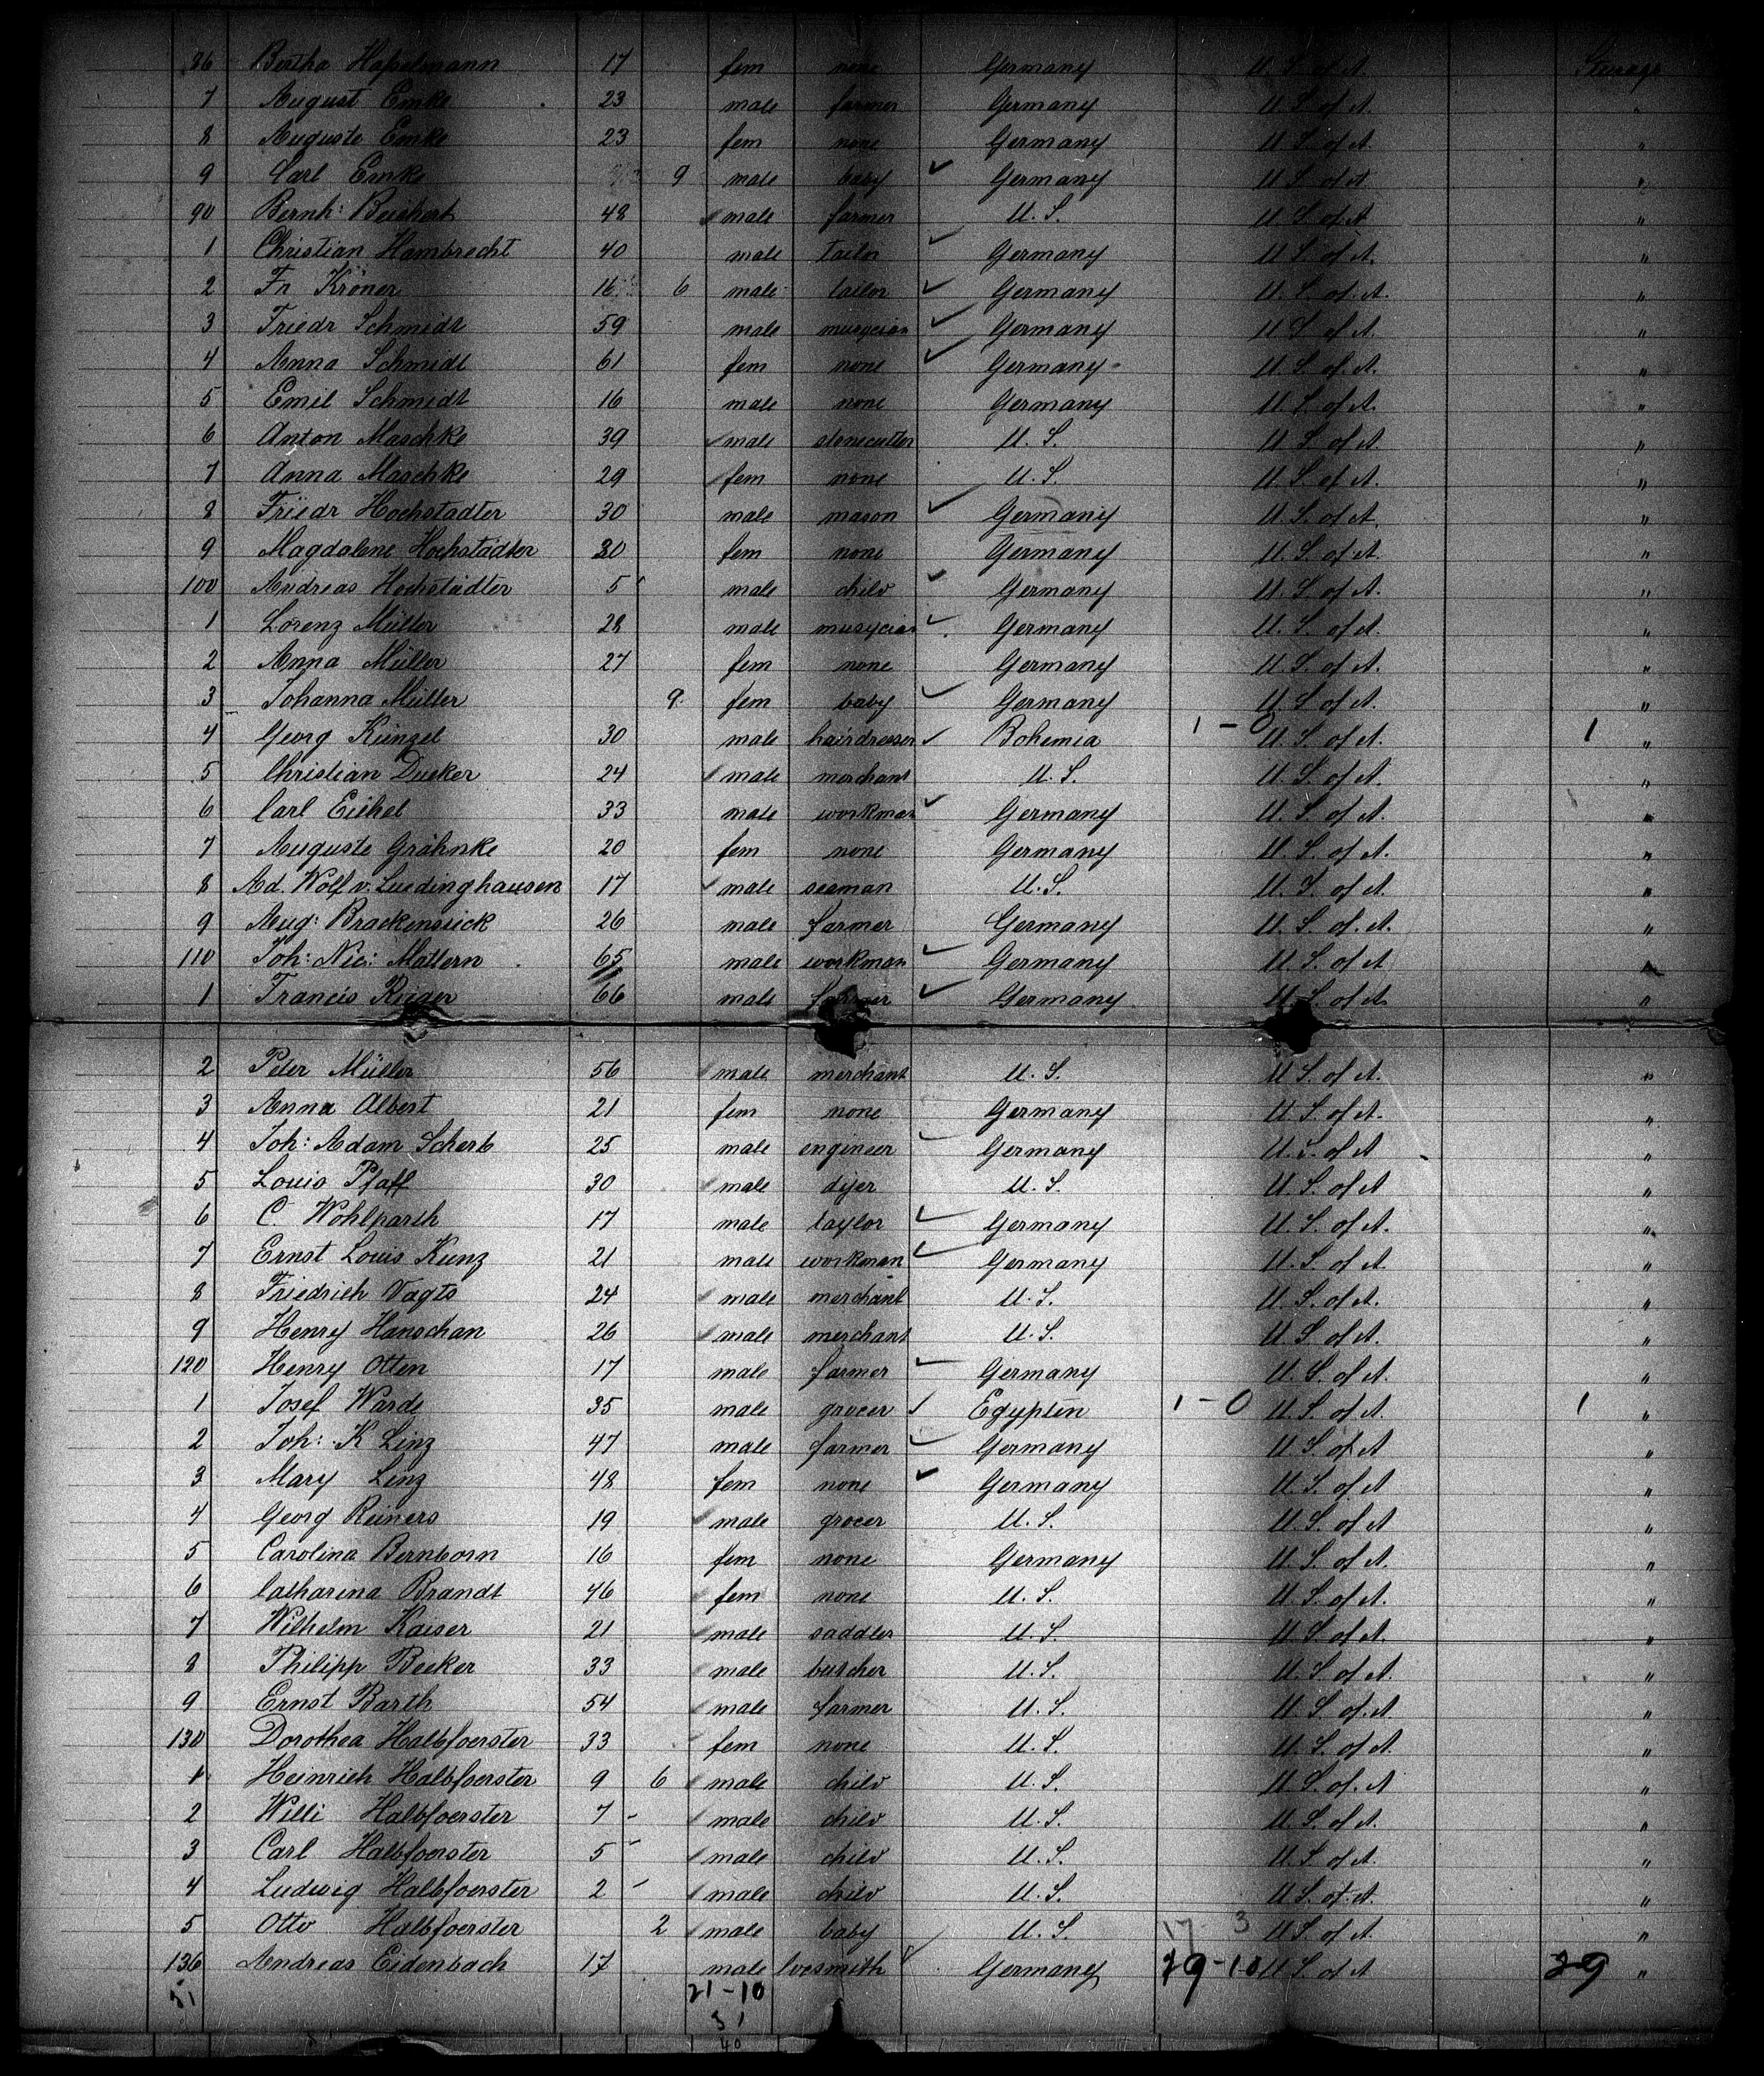 86 Bertha Hasselmann 17 fem none Germany U. S. of A. Steerage
7 August Emke 23 male farmer Germany U. S. of A. "
8 Auguste Emke 23 fem none Germany U. S. of A. "
9 Carl Emke 9 male baby ✓ Germany U. S. of A. "
90 Bernh: 48 male farmer U. S. U. S. of A. "
1 Christian Hambrecht 40 male tailor ✓ Germany U. S. of A. "
2 Fr Kröner 16 6 male tailor ✓ Germany U. S. of A. "
3 Friedr Schmidt 59 male musycian ✓ Germany U. S. of A. "
4 Anna Schmidt 61 fem none ✓ Germany U. S. of A. "
5 Emil Schmidt 16 male none Germany U. S. of A. "
6 Anton Maschke 39 male stonecutter U. S. U. S. of A. "
7 Anna Maschke 29 fem none U. S. U. S. of A. "
8 Friedr Hochstadter 30 male mason ✓ Germany U. S. of A. "
9 Magdalene Hochstädter 30 fem none Germany U. S. of A. "
100 Andreas Hochstädter 5 male child ✓ Germany U. S. of A. "
1 Lorenz Müller 28 male musycian ✓ Germany U. S. of A. "
2 Anna Müller 27 fem none Germany U. S. of A. "
3 Johanna Müller 9 fem baby ✓ Germany U. S. of A. "
4 Georg Künzel 30 male hairdresser ✓ Bohemia 1 - 0 U. S. of A. 1 "
5 Christian Ducker 24 male merchant U. S. U. S. of A. "
6 Carl Eichel 33 male workman ✓ Germany U. S. of A. "
7 Auguste Grähnke 20 fem none Germany U. S. of A. "
8 Ad. Wolf v. Luedinghausen 17 male seaman U. S. U. S. of A. "
9 Aug: Brackensiek 26 male farmer Germany U. S. of A. "
110 Joh: Nic: Mattern 65 male workman ✓ Germany U. S. of A "
1 Francis Rieger 66 male farmer ✓ Germany U. S. of A "
2 Peter Müller 56 male merchant U. S. U. S. of A. "
3 Anna Albert 21 fem none Germany U. S. of A. "
4 Joh: Adam Scherb 25 male engineer ✓ Germany U. S. of A "
5 Louis Pfaff 30 male dijer U. S. U. S. of A "
6 C. Wohlfarth 17 male taylor ✓ Germany U. S. of A. "
7 Ernst Louis Kunz 21 male workman ✓ Germany U. S. of A. "
8 Friedrich Vagts 24 male merchant U. S. U. S. of A. "
9 Henry Hanschan 26 male merchant U. S. U. S. of A. "
120 Henry Otten 17 male farmer ✓ Germany U. S. of A. "
1 Josef Warde 35 male grocer ✓ Egypten 1 - 0 U. S. of A. 1 "
2 Joh: K Linz 47 male farmer ✓ Germany U. S. of A "
3 Mary Linz 48 fem none ✓ Germany U. S. of A "
4 Georg Reiners 19 male grocer U. S. U. S. of A "
5 Carolina Bernborn 16 fem none Germany U. S. of A. "
6 Catharina Brandt 46 fem none U. S. U. S. of A. "
7 Wilhelm Kaiser 21 male saddler U. S. U. S. of A. "
8 Philipp Becker 33 male butcher U. S. U. S. of A. "
9 Ernst Barth 54 male farmer U. S. U. S. of A. "
130 Dorothea Halbfoerster 33 fem none U. S. U. S. of A. "
1 Heinrich Halbfoerster 9 6 male child U. S. U. S. of A "
2 Willi Halbfoerster 7 - male child U. S. U. S. of A. "
3 Carl Halbfoerster 5 - male child U. S. U. S. of A. "
4 Ludwig Halbfoerster 2 - male child U. S. U. S. of A. "
5 Otto Halbfoerster 2 male baby U. S. 17 3 U. S. of A. "
136 Andreas Eidenbach 17 male locsmith ✓ Germany 29-10 U. S. of A 29 "
51 21-10
51
40